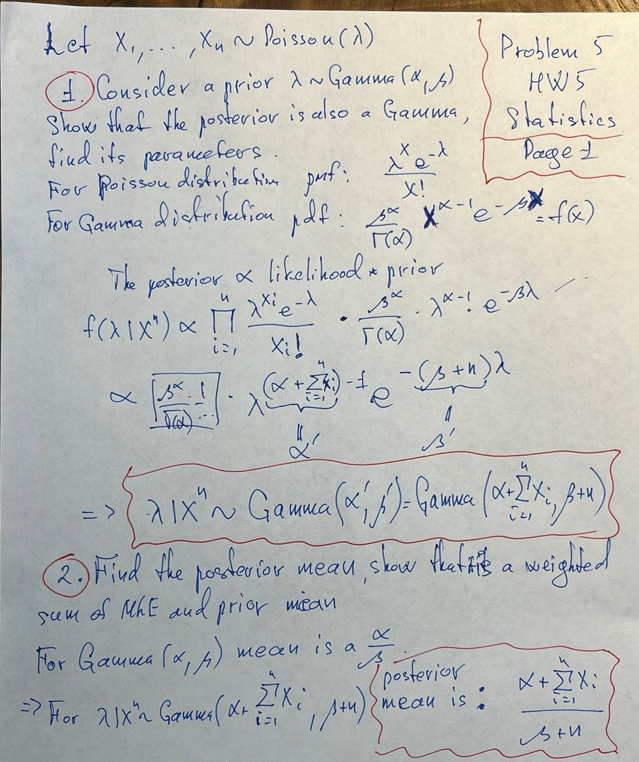 Let X₁, ..., Xₙ ~ Poisson(λ)
Problem 5
HW5
Statistics
Page 1
1. Consider a prior λ ~ Gamma(α, β)
Show that the posterior is also a Gamma,
find its parameters.
For Poisson distribution pmf: λ^x e^-λ / x!
For Gamma distribution pdf: β^α / Γ(α) x^α-1 e^-βx = f(x)
The posterior ∝ likelihood * prior
f(λ|Xⁿ) ∝ ∏_{i=1}^{n} λ^{Xi} e^{-λ} / Xi! · β^α / Γ(α) · λ^{α-1} e^{-βλ}
∝ β^α / Γ(α) · λ^{(α + ∑_{i=1}^{n} Xi) - 1} e^{-(β+n)λ}
= α' = β'
=> λ|Xⁿ ~ Gamma(α', β') = Gamma(α + ∑_{i=1}^{n} Xi, β+n)
2. Find the posterior mean, show that is a weighted
sum of MLE and prior mean
For Gamma(α, β) mean is a α/β
=> For λ|Xⁿ ~ Gamma(α + ∑_{i=1}^{n} Xi, β+n)
posterior
mean is: α + ∑_{i=1}^{n} Xi / β+n